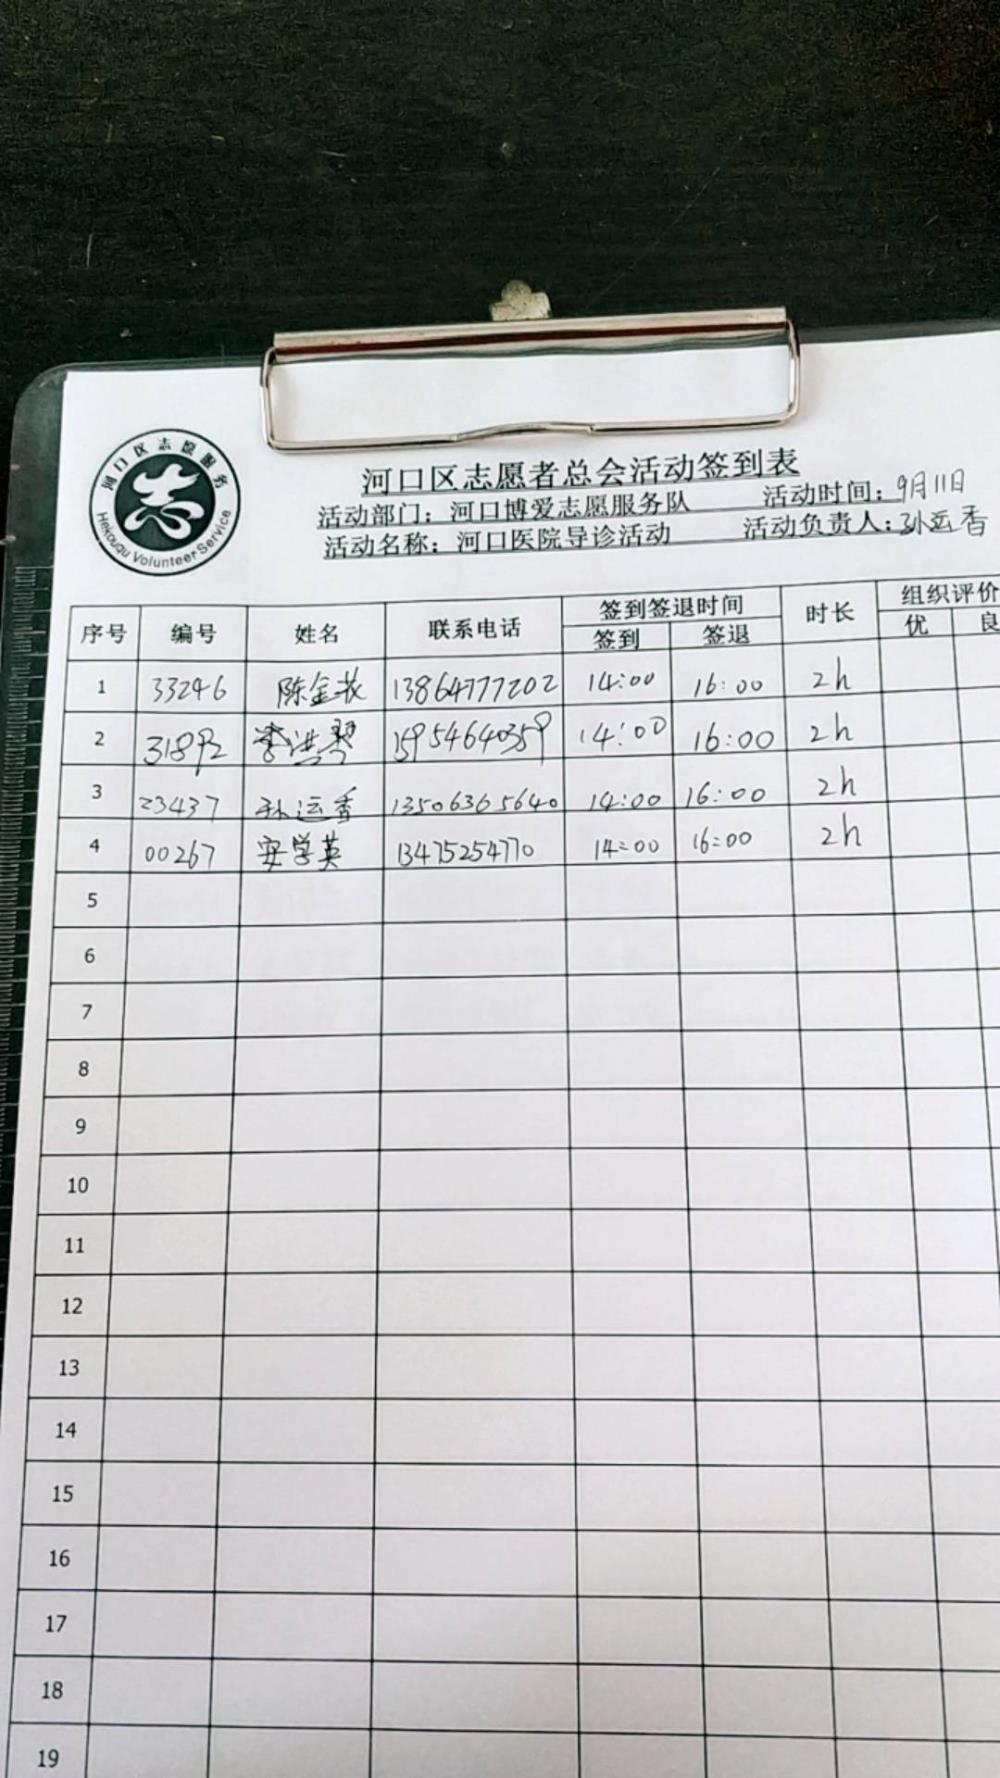 河口区志愿服务
志
Hekouqu Volunteer Service
河口区志愿者总会活动签到表
活动部门：河口博爱志愿服务队 活动时间：9月11日
活动名称：河口医院导诊活动 活动负责人：孙运香
序号 编号 姓名 联系电话 签到签退时间 时长 组织评价
签到 签退 优 良
1 33246 陈金 13864777202 14:00 16:00 2h
2 31892 李洪琴 15954640359 14:00 16:00 2h
3 23437 孙运香 13506365640 14:00 16:00 2h
4 00267 安学英 13475254770 14:00 16:00 2h
5
6
7
8
9
10
11
12
13
14
15
16
17
18
19